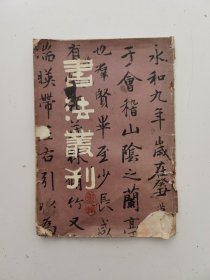 書法叢刊
永和九年歲在癸
于會稽山陰之蘭亭
也羣賢畢至少長咸
有竹又
湍暎帶右引以為